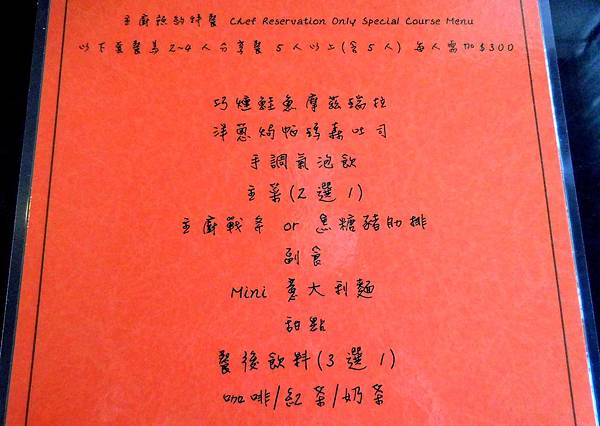 主廚預約特餐 Chef Reservation Only Special Course Menu
以下套餐為2~4人分享餐 5人以上(含5人) 每人需加$300
巧燻鮭魚摩茲瑞拉
洋蔥焗帕瑪森吐司
手調氣泡飲
主菜(2選1)
主廚戰斧 or 黑糖豬肋排
副食
Mini 意大利麵
甜點
餐後飲料(3選1)
咖啡/紅茶/奶茶